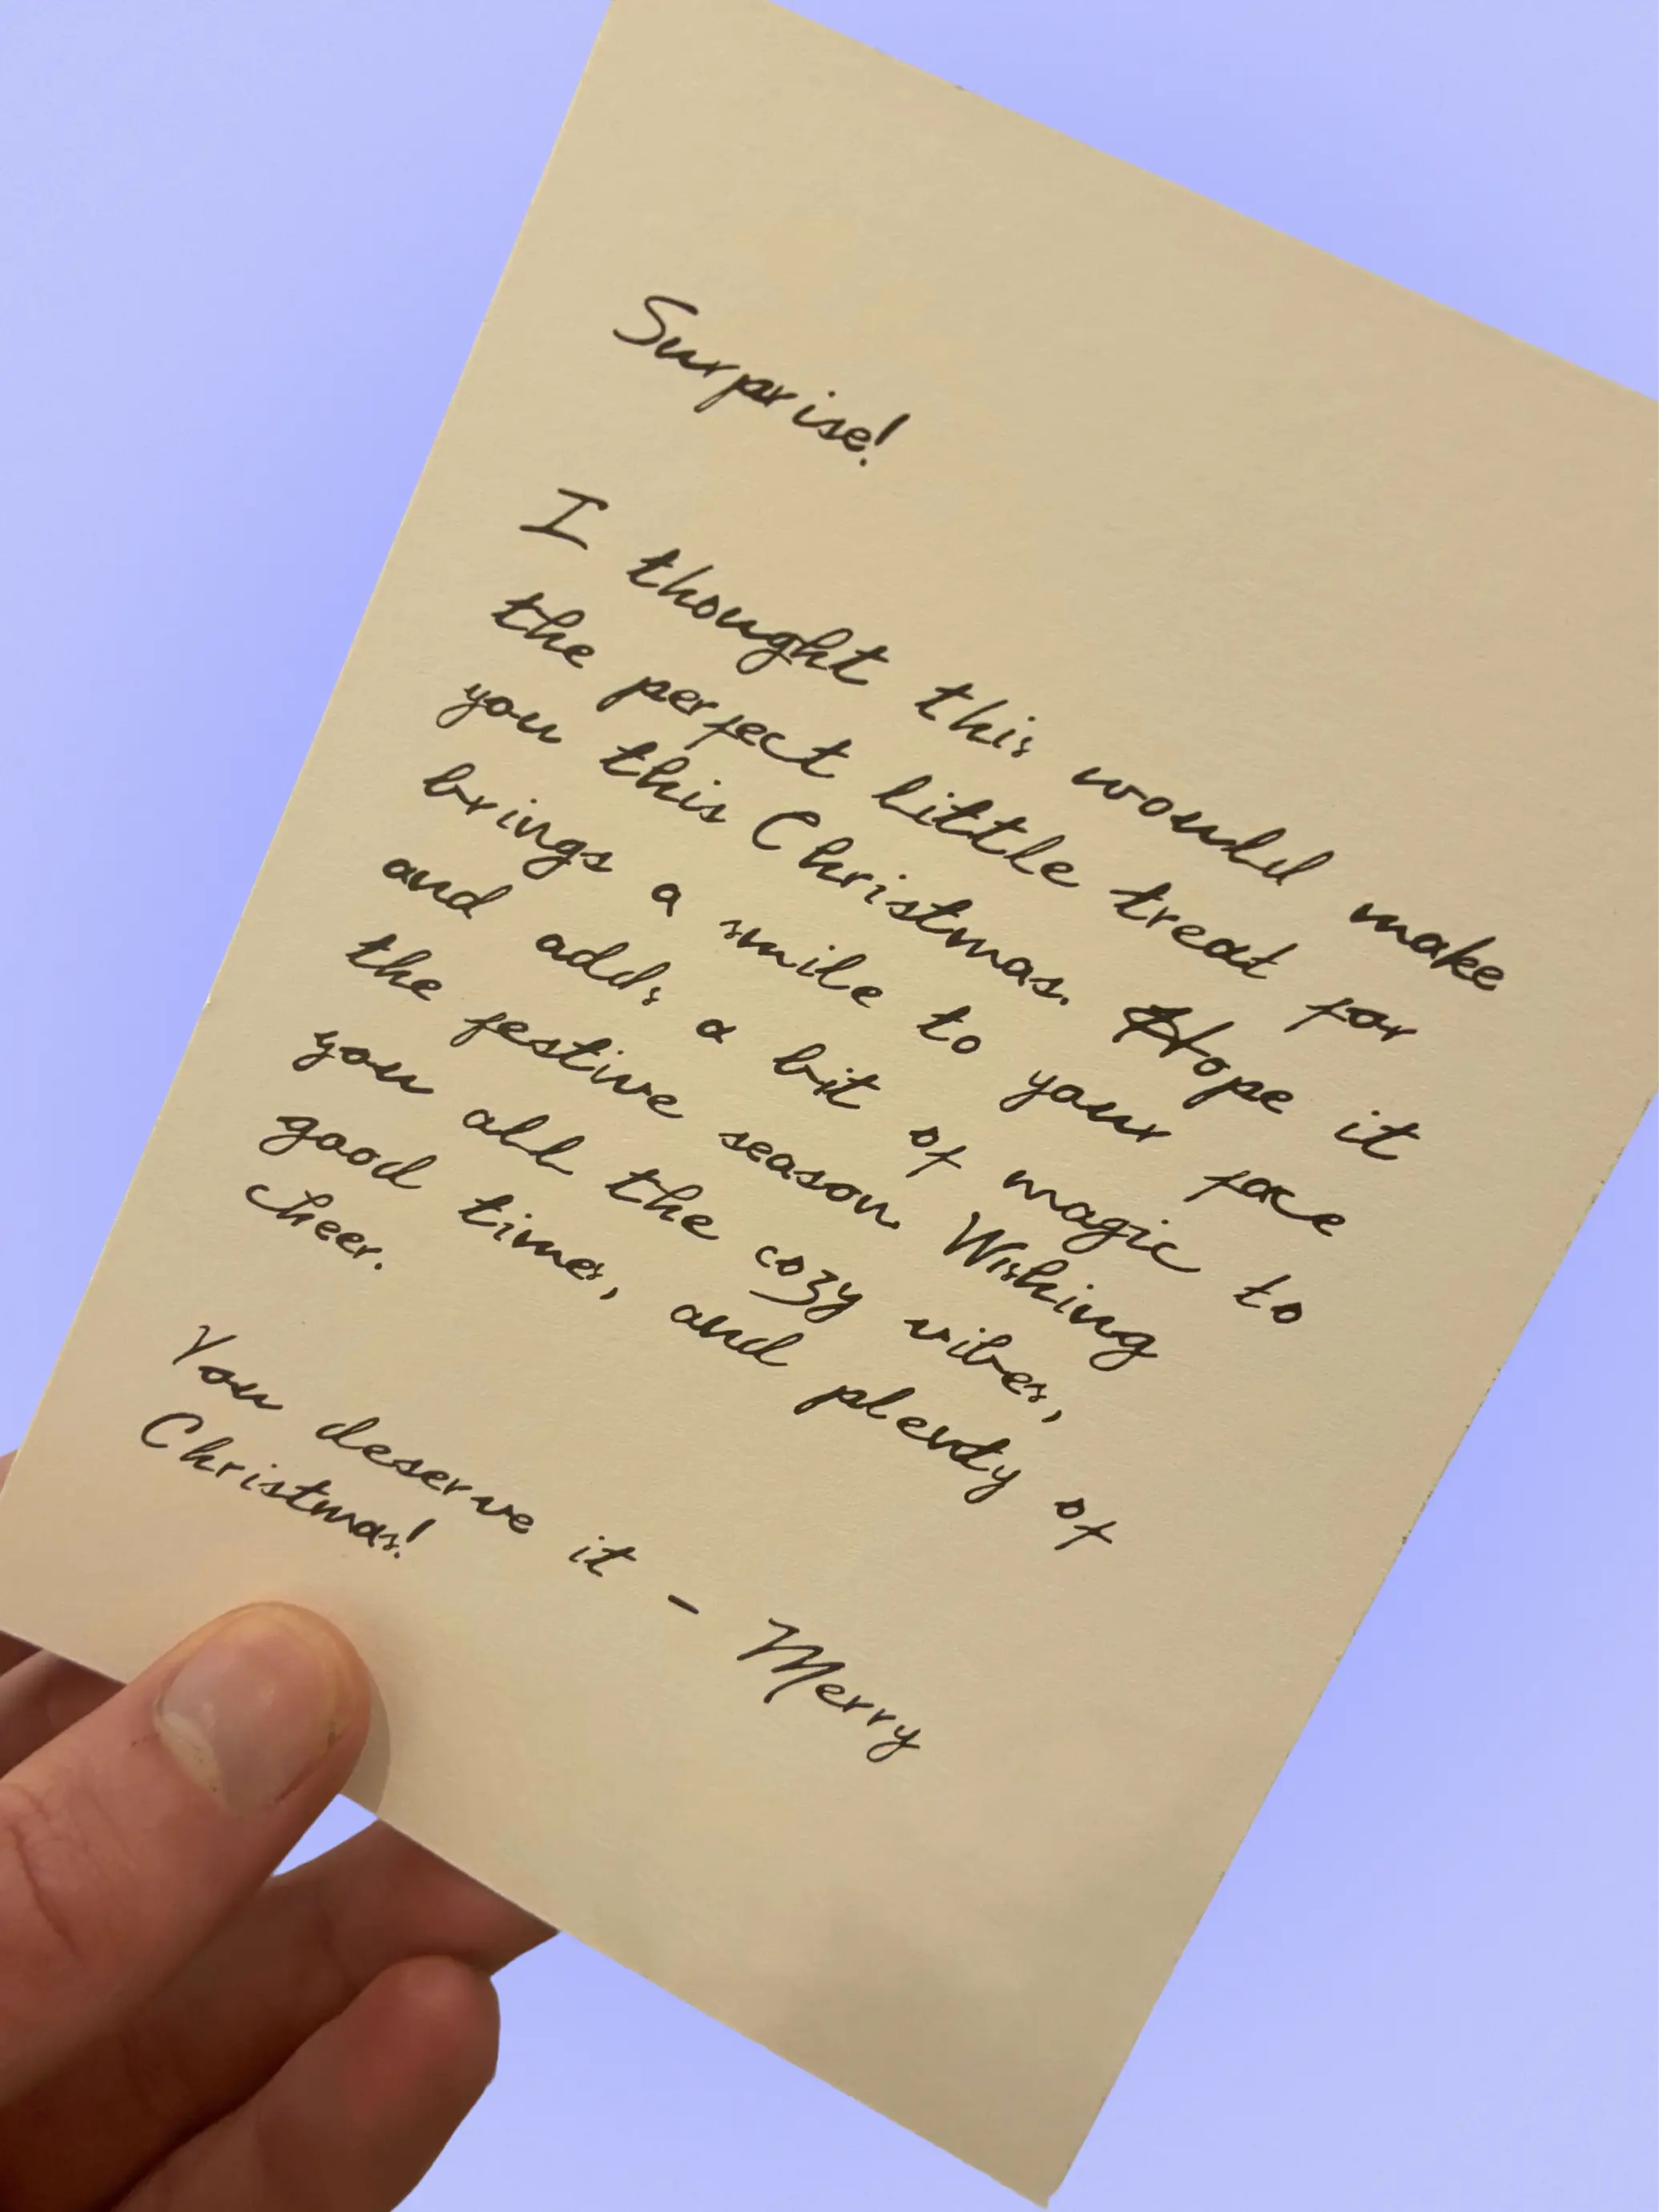 Surprise!
I thought this would make
the perfect little treat for
you this Christmas. Hope it
brings a smile to your face
and adds a bit of magic to
the festive season. Wishing
you all the cozy vibes,
good times, and plenty of
cheer.
You deserve it - Merry
Christmas!